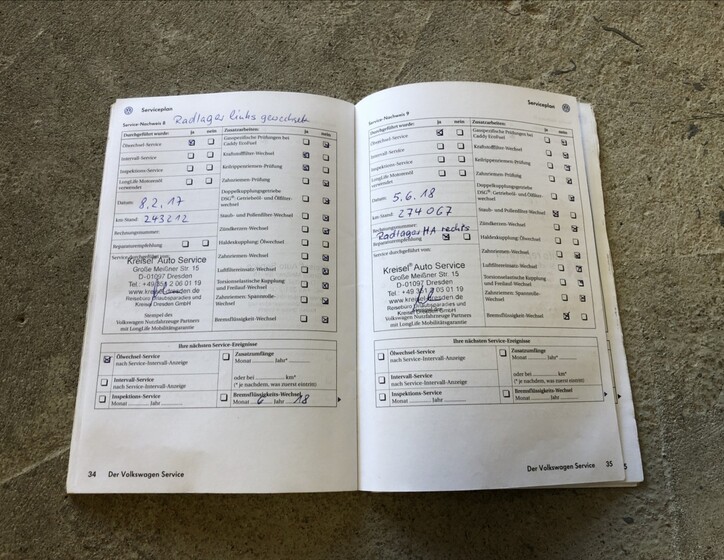 Serviceplan
Service-Nachweis 8
Radlager links gewechselt
Durchgeführt wurde: ja nein
Ölwechsel-Service
Intervall-Service
Inspektions-Service
LongLife Motorenöl
verwendet
Datum: 8.2.17
km-Stand: 243212
Rechnungsnummer:
Reparaturempfehlung
Service durchgeführt von:
Kreisel Auto Service
Große Meißner Str. 15
D-01097 Dresden
Reisebüro Urlaubsparadies und
Kreisel Dresden GmbH
Stempel des
Volkswagen Nutzfahrzeuge Partners
mit LongLife Mobilitätsgarantie
Zusatzarbeiten: ja nein
Gasspezifische Prüfungen bei
Caddy EcoFuel
Kraftstofffilter-Wechsel
Keilrippenriemen-Prüfung
Zahnriemen-Prüfung
Doppelkupplungsgetriebe
DSG®: Getriebeöl- und Ölfilter-
wechsel
Staub- und Pollenfilter-Wechsel
Zündkerzen-Wechsel
Haldexkupplung: Ölwechsel
Zahnriemen-Wechsel
Luftfiltereinsatz-Wechsel
Torsionselastische Kupplung
und Freilauf-Wechsel
Zahnriemen: Spannrolle-
Wechsel
Bremsflüssigkeits-Wechsel
Ihre nächsten Service-Ereignisse
Ölwechsel-Service
nach Service-Intervall-Anzeige
Intervall-Service
nach Service-Intervall-Anzeige
Inspektions-Service
Monat Jahr
Zusatzumfänge
Monat Jahr*
oder bei km*
(* je nachdem, was zuerst eintritt)
Bremsflüssigkeits-Wechsel
Monat 6 Jahr 18
34 Der Volkswagen Service
Serviceplan
Service-Nachweis 9
Durchgeführt wurde: ja nein
Ölwechsel-Service
Intervall-Service
Inspektions-Service
LongLife Motorenöl
verwendet
Datum: 5.6.18
km-Stand: 274067
Rechnungsnummer:
Radlager HA rechts
Reparaturempfehlung
Service durchgeführt von:
Kreisel Auto Service
Große Meißner Str. 15
D-01097 Dresden
Reisebüro Urlaubsparadies und
Kreisel Dresden GmbH
Volkswagen Nutzfahrzeuge Partners
mit LongLife Mobilitätsgarantie
Zusatzarbeiten: ja nein
Gasspezifische Prüfungen bei
Caddy EcoFuel
Kraftstofffilter-Wechsel
Keilrippenriemen-Prüfung
Zahnriemen-Prüfung
Doppelkupplungsgetriebe
DSG®: Getriebeöl- und Ölfilter-
wechsel
Staub- und Pollenfilter-Wechsel
Zündkerzen-Wechsel
Haldexkupplung: Ölwechsel
Zahnriemen-Wechsel
Luftfiltereinsatz-Wechsel
Torsionselastische Kupplung
und Freilauf-Wechsel
Zahnriemen: Spannrolle-
Wechsel
Bremsflüssigkeits-Wechsel
Ihre nächsten Service-Ereignisse
Ölwechsel-Service
nach Service-Intervall-Anzeige
Intervall-Service
nach Service-Intervall-Anzeige
Inspektions-Service
Monat Jahr
Zusatzumfänge
Monat Jahr*
oder bei km*
(* je nachdem, was zuerst eintritt)
Bremsflüssigkeits-Wechsel
Monat Jahr
Der Volkswagen Service 35